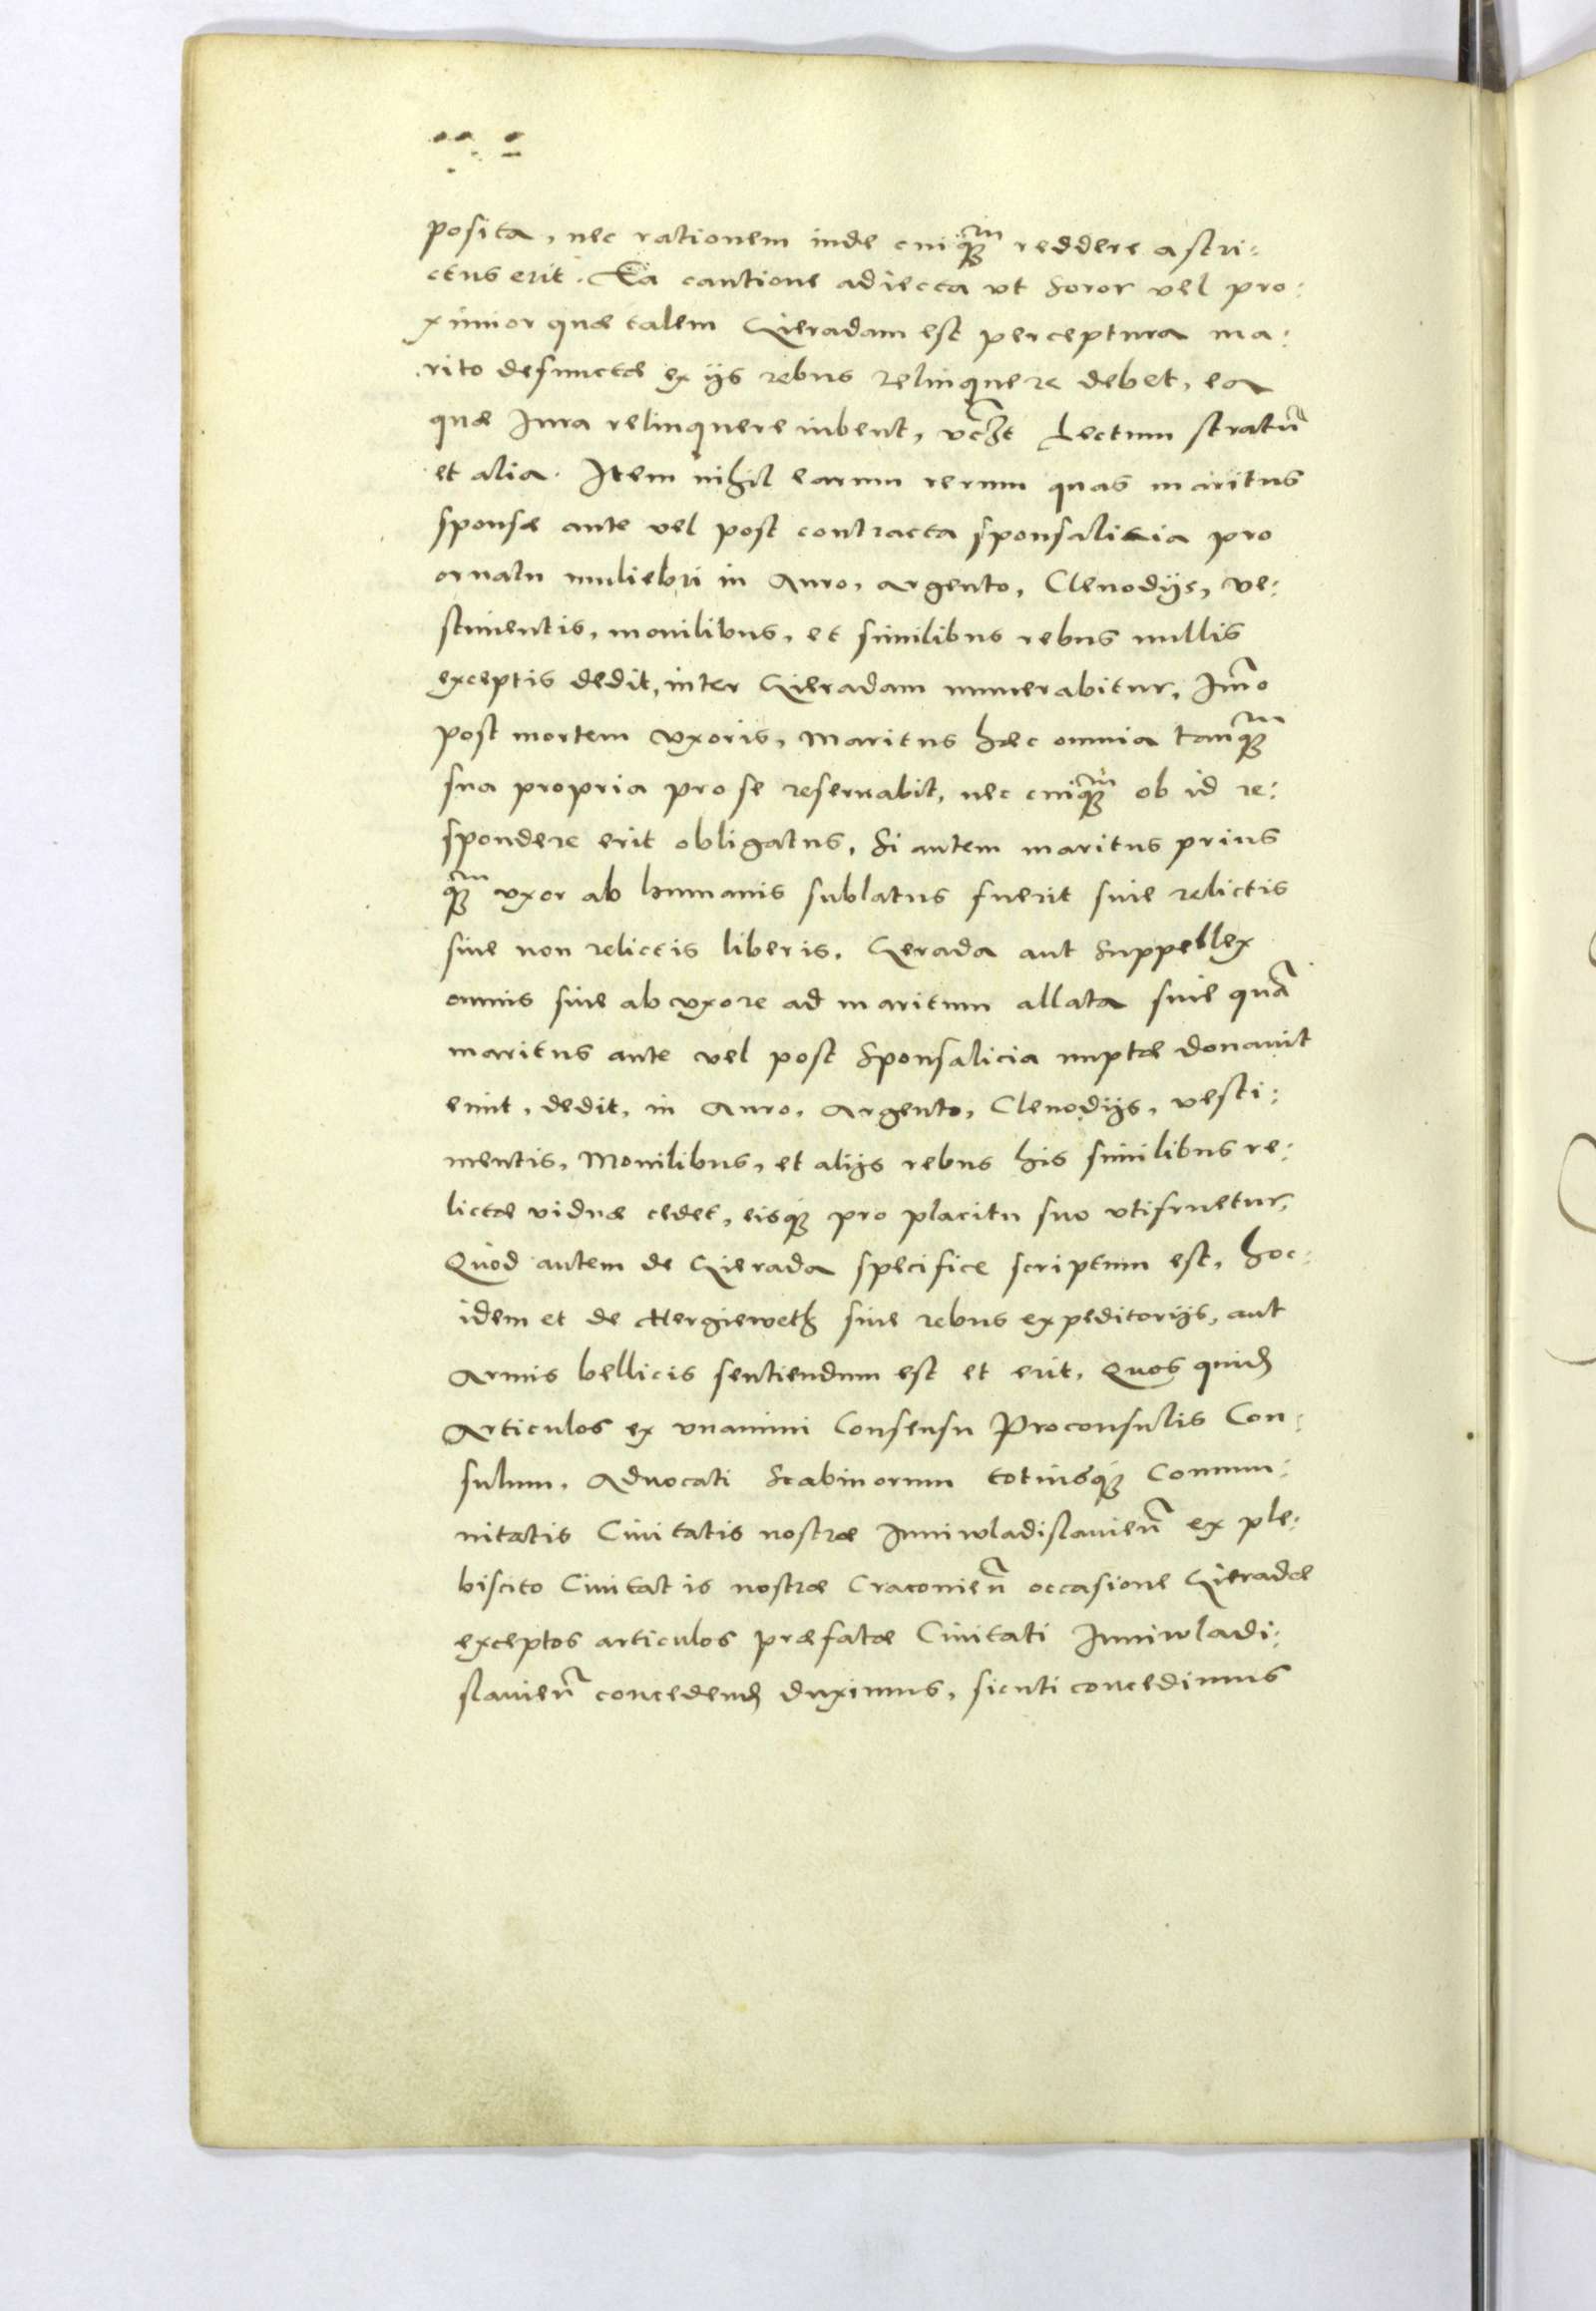 posita, nec rationem inde cuiq̃ꝫ reddere astri:
ctus erit. Ea cautione adiecta vt Soror vel pro:
ximior quæ talem Gieradam est perceptura ma:
rito defunctæ ex ijs rebus relinquere debet, ea
quæ Jura relinquere iubent, vcꝫt Lectum stratũ
et alia. Item nihil earum rerum quas maritus
sponsæ ante vel post contracta sponsalitia pro
ornatu muliebri in Auro, argento, Clenodijs, ve:
stimentis, monilibus, et similibus rebus nullis
exceptis dedit, inter Gieradam numerabitur, Im̃o
post mortem vxoris, Maritus hæc omnia tanq̃ꝫ
sua propria pro se reseruabit, nec cuiq̃ꝫ ob id re:
spondere erit obligatus, Si autem maritus prius
q̃ꝫ vxor ab humanis sublatus fuerit siue relictis
siue non relictis liberis, Gerada aut Suppellex
omnis siue ab vxore ad maritum allata siue quã
maritus ante vel post Sponsalicia nuptæ donauit
emit, dedit, in Auro, Argento, Clenodijs, vesti:
mentis, Monilibus, et alijs rebus his similibus re:
lictæ viduæ cedet, eisqꝫ pro placitu suo vtifruetur,
Quod autem de Gierada specifice scriptum est, hoc
idem et de Hergieweth siue rebus expeditorijs, aut
Armis bellicis sentiendum est et erit, Quos quidẽ
Articulos ex vnanimi Consensu Proconsulis Con:
sulum, Aduocati Scabinorum totiusqꝫ Commu:
nitatis Ciuitatis nostræ Juniwladislauieñ ex ple:
biscito Ciuitatis nostræ Cracouieñ occasione Gieradæ
exceptos articulos præfatæ Ciuitati Juniwladi:
slauieñ concedendꝫ duximus, sicuti concedimus